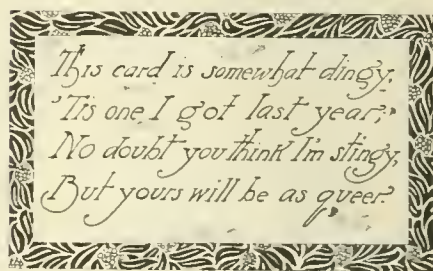 This card is somewhat dingy,
'Tis one I got last year;
No doubt you think I'm stingy,
But yours will be as queer.